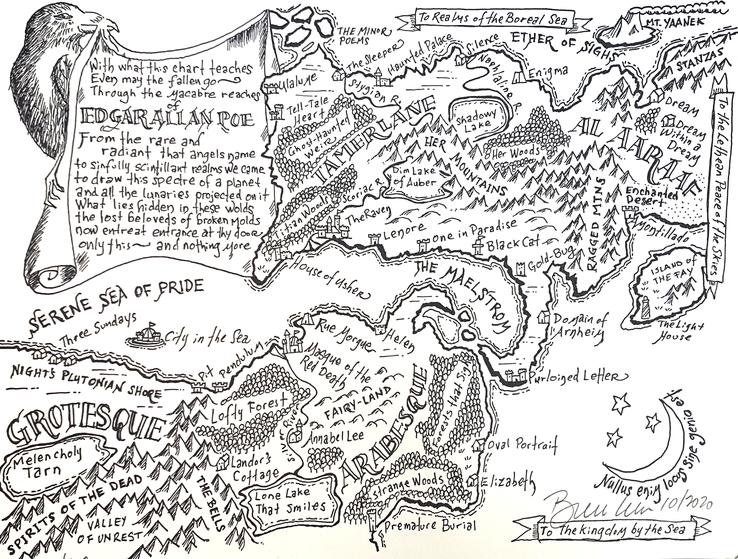 With what this chart teaches
Even may the fallen go
Through the macabre reaches
of
EDGAR ALLAN POE
From the rare and
radiant that angels name
to sinfully scintillant realms we came
to draw this spectre of a planet
and all the lunaries projected on it
What lies hidden in these wolds
the lost beloveds of broken molds
now entreat entrance at thy door
only this ~ and nothing more
THE MINOR
POEMS
To Realms of the Boreal Sea
ETHER OF SIGHS
MT. YAANEK
STANZAS
The Sleeper
Haunted Palace
Silence
Enigma
Ulalume
Stygian R.
Tell-Tale
Heart
Ghoul Haunted
Weir
TAMERLANE
Shadowy
Lake
HER MOUNTAINS
Her Woods
AL AARAAF
Dream
Dream
Within a
Dream
Dim Lake
of Auber
Scoriac R.
Titan Woods
The Raven
Lenore
One in Paradise
Black Cat
Gold-Bug
RAGGED MTNS
Enchanted
Desert
Montillado
To the Lethean Peace of the Skies
ISLAND OF
THE FAY
The Light
House
House of Usher
THE MAELSTROM
Domain of
Arnheim
Purloined Letter
SERENE SEA OF PRIDE
Three Sundays
City in the Sea
NIGHT'S PLUTONIAN SHORE
Pit
Pendulum
Rue Morgue
Helen
Masque of the
Red Death
FAIRY-LAND
GROTESQUE
Lofty Forest
Silver River
Annabel Lee
ARABESQUE
Forests that Sigh
Melencholy
Tarn
Landor's
Cottage
Lone Lake
That Smiles
Strange Woods
Oval Portrait
Elizabeth
Premature Burial
SPIRITS OF THE DEAD
VALLEY
OF UNREST
THE BELLS
Nullus enim locus sine genio est
10/2020
To the kingdom by the Sea